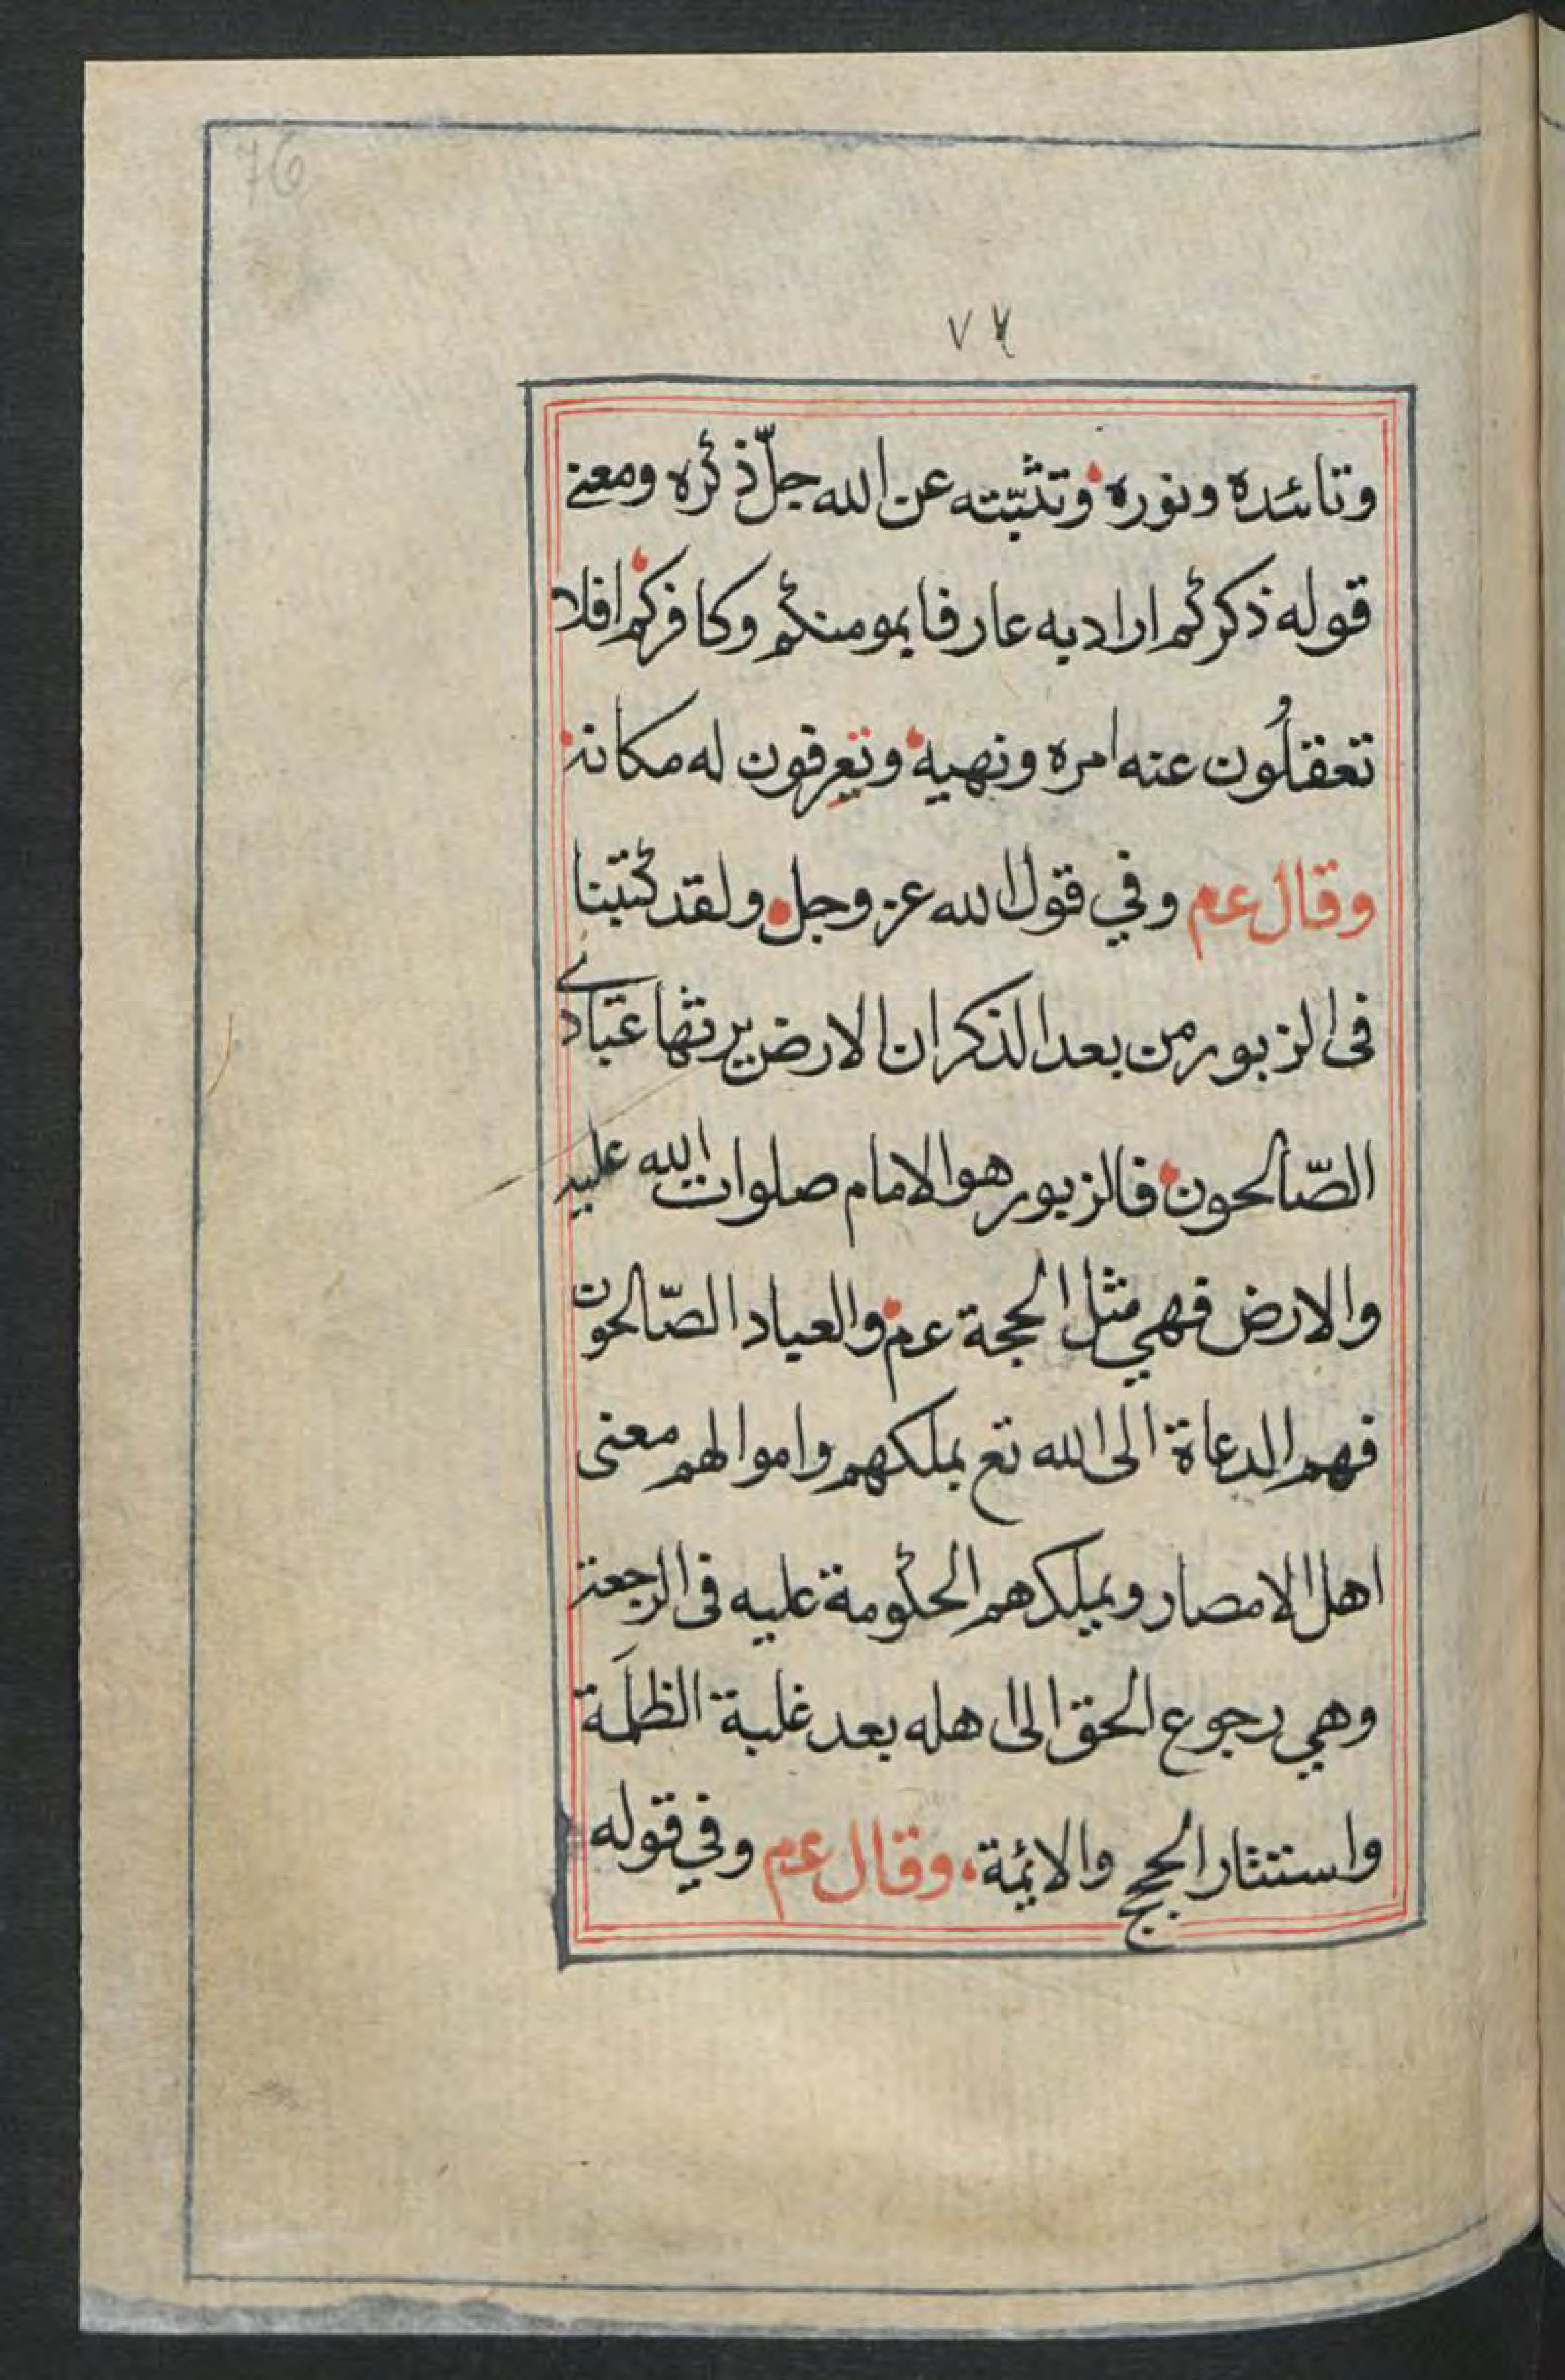 76
٧٤
وتائده ونوره وتثبّته عن الله جلّ ذكره ومعنى
قوله ذكركم اراد به عارفا بمومنكم وكافركم افلا
تعقلُون عنه امره ونهيه وتعرفون له مكانه
وقال عم وفي قول الله عز وجل ولقد كتبنا
فى الزبور من بعد الذكر ان الارض يرثها عبادي
الصّالحون فالزبور هو الامام صلوات الله عليه
والارض فهي مثل الحجة عم والعباد الصّالحون
فهم الدعاة الى الله تع بملكهم واموالهم معنى
اهل الامصار ويملكهم الحكومة عليه فى الرجعة
وهي رجوع الحق الى اهله بعد غلبة الظلَمة
واستتار الحجج والائمة، وقال عم وفي قوله